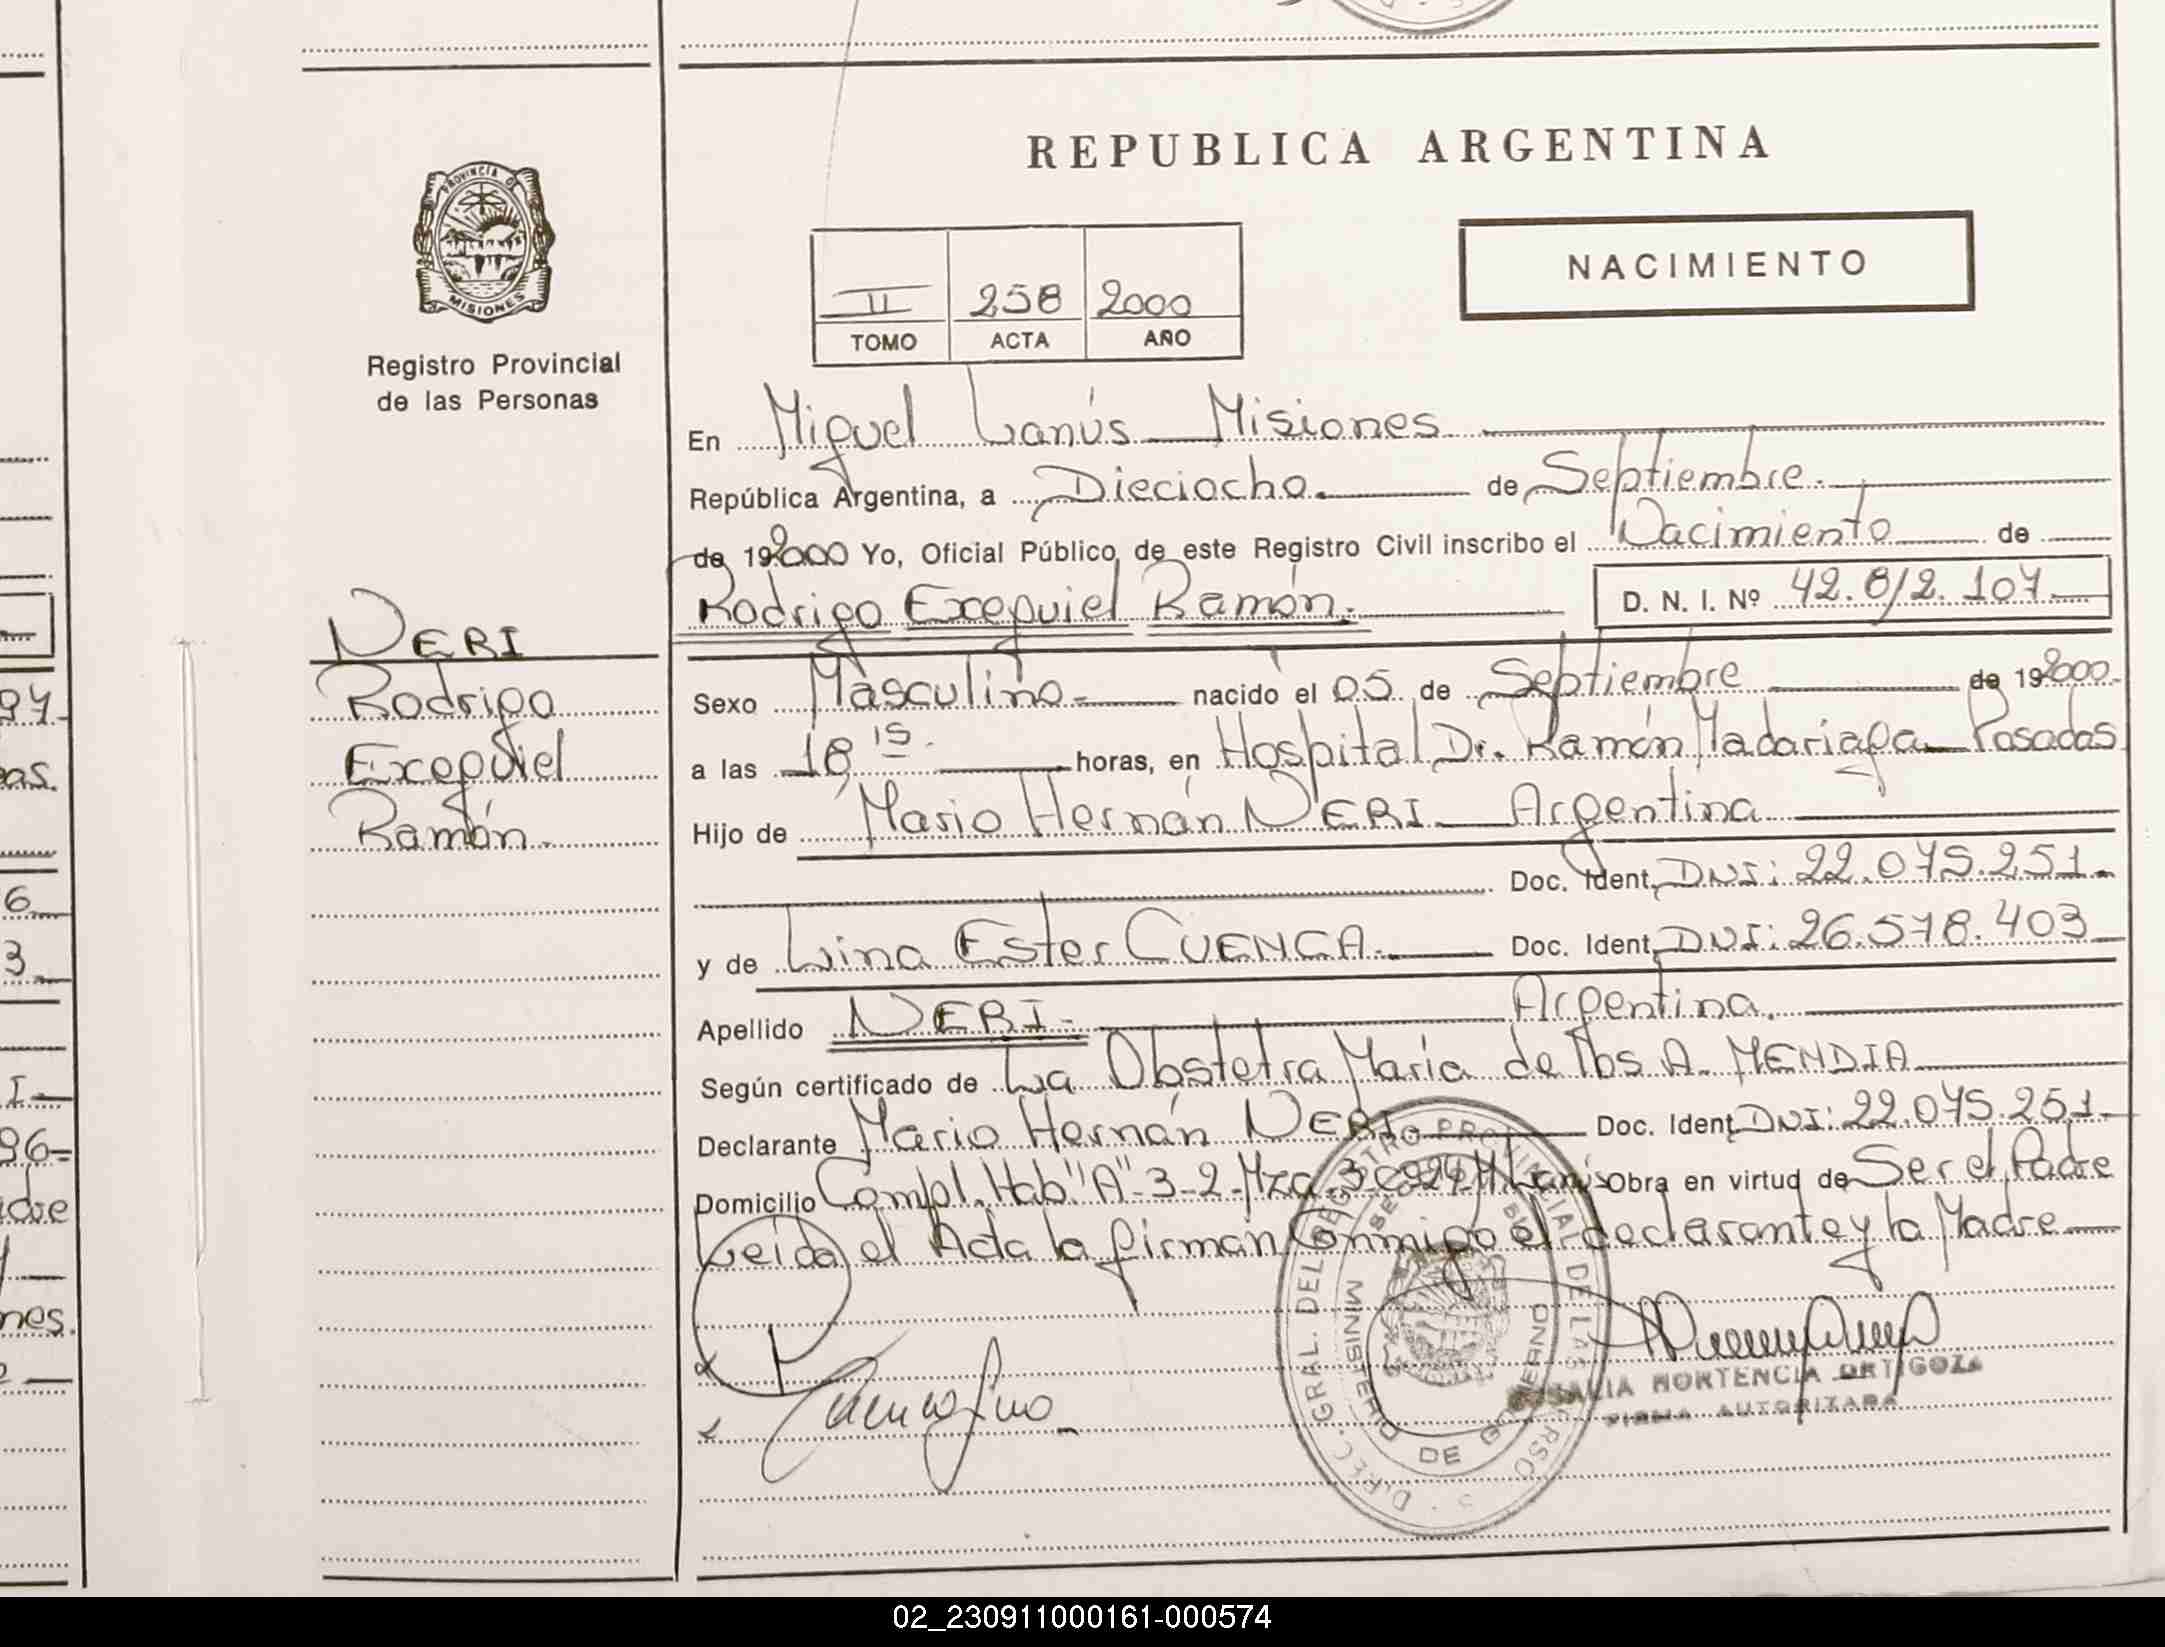 REPUBLICA ARGENTINA
PROVINCIA DE
MISIONES
Registro Provincial
de las Personas
NACIMIENTO
II 258 2000
TOMO ACTA AÑO
En Miguel Lanús Misiones
República Argentina, a Dieciocho. de Septiembre.
de 19 2000 Yo, Oficial Público de este Registro Civil inscribo el Nacimiento de
Rodrigo Exequiel Ramón. D. N. I. Nº 42.812.107
NERI
Rodrigo
Exequiel
Ramón.
Sexo Masculino nacido el 05 de Septiembre de 19 2000.
a las 18 15 horas, en Hospital Dr. Ramón Madariaga Posadas
Hijo de Mario Hernán NERI Argentina
Doc. Ident. DNI: 22.075.251.
y de Lina Ester CUENCA. Doc. Ident. DNI: 26.578.403
Apellido NERI Argentina.
Según certificado de La Obstetra María de los A. MENDIA
Declarante Mario Hernán NERI Doc. Ident. DNI: 22.075.251
Domicilio Compl. Hab "A" 3-2 Mza. 3 M. Lanús Obra en virtud de Ser el Padre
Leída el Acta la firman Conmigo el declarante y la Madre
DIREC. GRAL. DEL REGISTRO PROVINCIAL DE LAS
MINISTERIO DE GOBIERNO
HORTENCIA ORTIGOZA
FIRMA AUTORIZADA
02_230911000161-000574